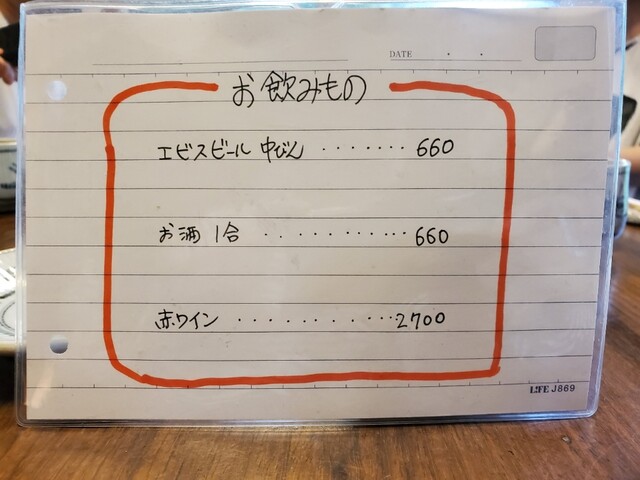 DATE . .
お飲みもの
エビスビール 中びん ・・・・・・・ 660
お酒 1合 ・・・・・・・・・・・ 660
赤ワイン ・・・・・・・・・・・ 2700
LIFE J869